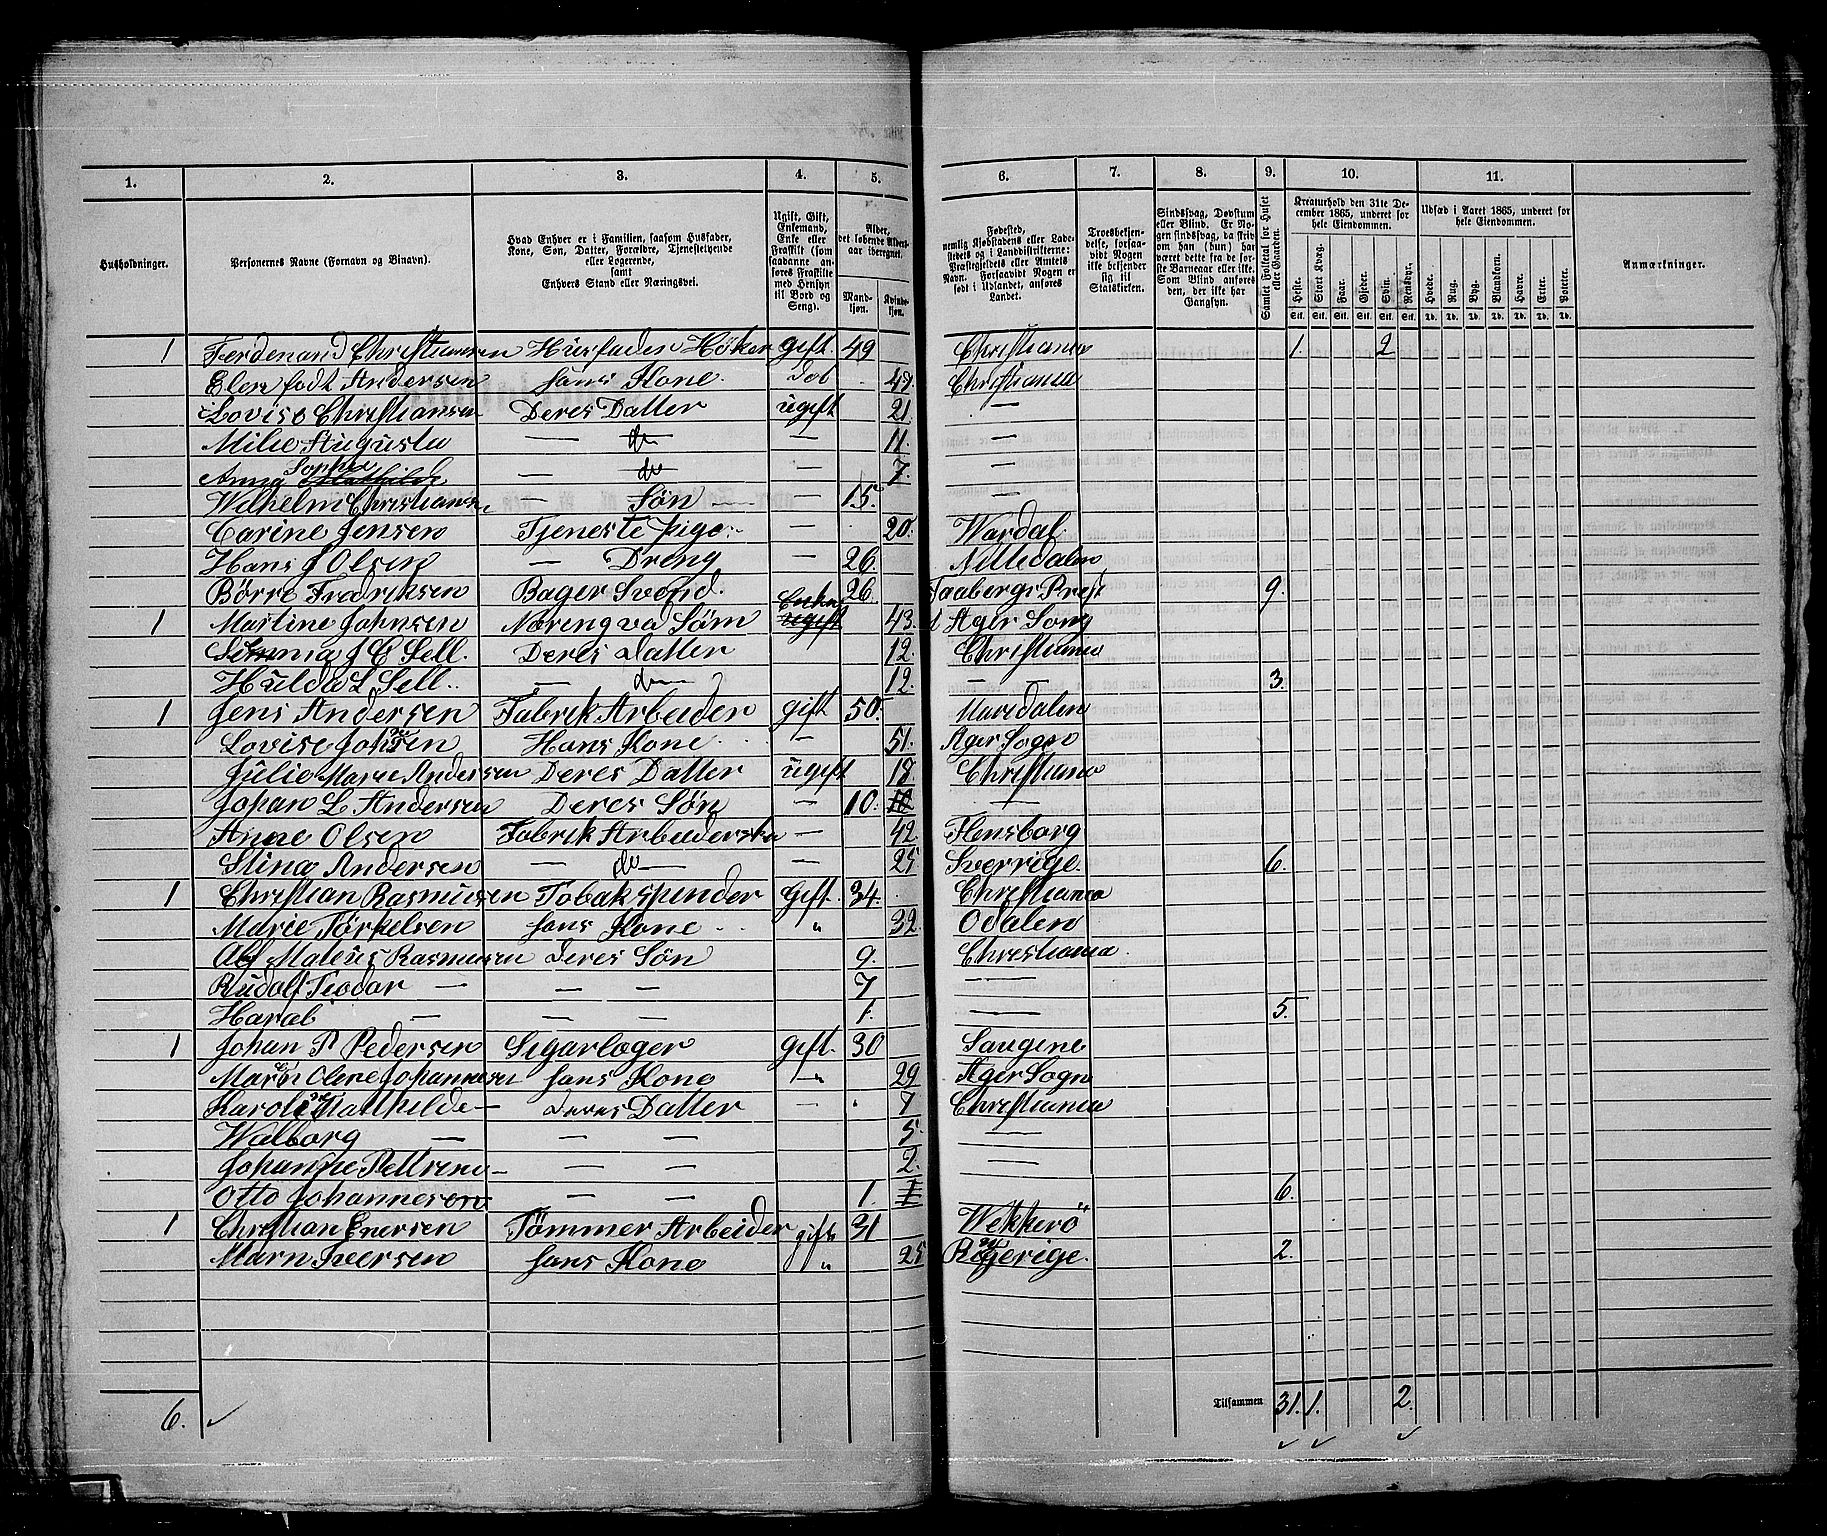 1. 2. 3. 4. 5. 6. 7. 8. 9. 10. 11.
Husholdninger.
Personernes Navne (Fornavn og Binavn).
Hvad Enhver er i Familien, saasom Husfader, Kone, Søn, Datter, Forældre, Tjenestetyende eller Logerende, samt Enhvers Stand eller Næringsvei.
Ugift, Gift, Enkemand, Enke eller Fraskilt (som saadanne anføres Fraskilte med Hensyn til Bord og Seng).
Alder, det løbende Aldersaar iberegnet.
Mandkjøn. Kvindekjøn.
Fødested, nemlig Kjøbstadens eller Ladestedets og i Landdistrikterne: Præstegjeldets eller Amtets Navn. Forsaavidt Nogen er født i Udlandet, anføres Landet.
Troesbekjendelse, forsaavidt Nogen ikke bekjender sig til Statskirken.
Sindssvag, Døvstum eller Blind. Er Nogen sindssvag, da skriv om han (hun) har været dette fra de første Barneaar eller ikke. Som Blind anføres den, der ikke har Gangsyn.
Samlet Folketal for Huset eller Gaarden.
Kreaturhold den 31te December 1865, underet for hele Eiendommen.
Heste. Stort Kvæg. Faar. Gjeder. Svin. Rensdyr.
Udsæd i Aaret 1865, underet for hele Eiendommen.
Hvede. Rug. Byg. Blandkorn. Havre. Erter. Poteter.
Anmærkninger.
Stk. Stk. Stk. Stk. Stk. Stk. Td. Td. Td. Td. Td. Td. Td.
1 Ferdenand Christiansen Husfader Höker gift. 49 Christiania 1. 2
Elen født Andersen hans Kone. do 49. Christiania
Lovise Christiansen Deres Datter ugift 21. —
Milie Augusta — do — 11. —
Anna Sophie Mathilde — do — 7. —
Wilhelm Christiansen — Søn — 15. —
Carine Jensen Tjeneste pige. — 20. Wardal
Hans J Olsen — Dreng — 26. Nittedalen
Börre Fredriksen Bager Svend. 26. Faabergs Prest 9.
1 Martine Johnsen Næring ved Söm Enke ugift 43. Ager Song
J C Sell. Deres Datter 12. Christiania
Hulda L Sell.. — do — 12. — — 3.
1 Jens Andersen Fabrik Arbeider gift 50. Maridalen
Lovise Johnsen Hans Kone. — 51. Ager Sogn
Julie Marie Andersen Deres Datter ugift 18. Christiania
Johan L Andersen Deres Søn — 10. 10 —
Anne Olsen Fabrik Arbeiderska — 42 Flensborg
Stina Andersen — do — — 25 Sverrige. 6.
1 Christian Rasmusen Tobakspinder gift. 34. Christiania
Marie Törkelsen hans Kone „ 32. Odalen
Alf Mateus Rasmusen deres Søn 9. Christiania.
Rudolf Teodor — — — 7 —
Haral — — — 1. — 5.
1 Johan P Pedersen Sigarlager gift. 30 Saugine
Maren Oline Johannesen hans Kone — „ 29 Ager Sogn
Karoline Mathilde — deres Datter — 7 Christiania
Walborg — — — 5 —
Johanne Petrine — — — 2. —
Otto Johannesen — — 1. 1 6.
1 Christian Enersen Tömmer Arbeider gift 31 Wekkerö
Marn Iversen hans Kone „ 25 Ringerige. 2.
6. Tilsammen 31. 1. 2.